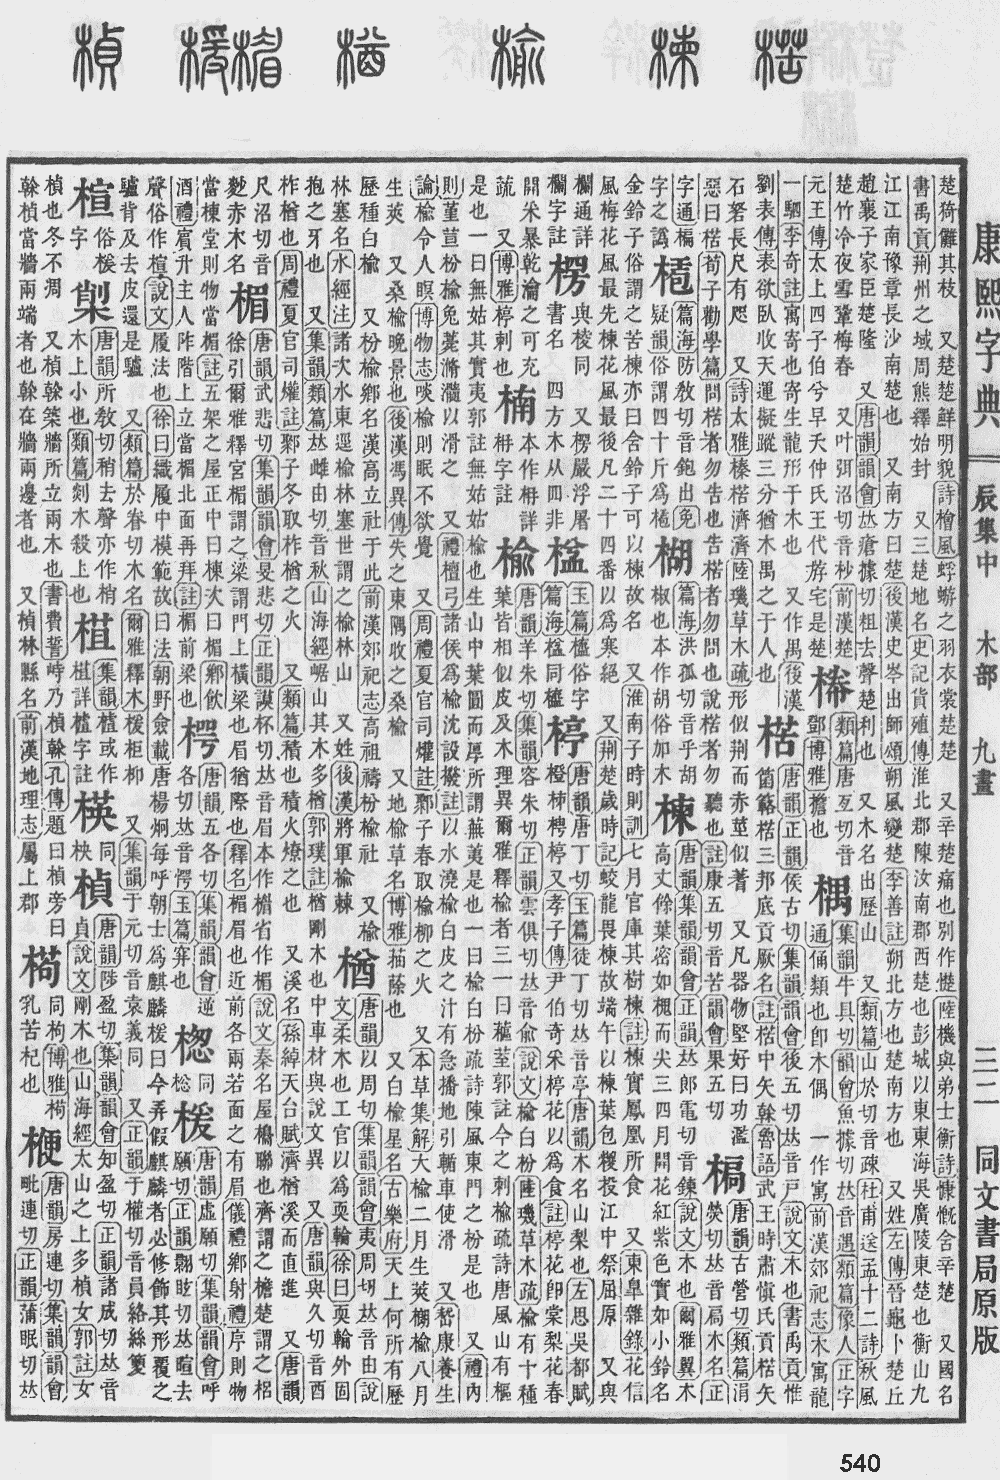 楛 楝 榆 楢 楣 楥 楨
康熙字典 辰集中 木部 九畫 三二 同文書局原版
楚猗儺其枝 又楚楚鮮明貌詩檜風蜉蝣之羽衣裳楚楚 又辛楚痛也別作憷陸機與弟士衡詩慷慨含辛楚 又國名
書禹貢荆州之域周熊繹始封 又三楚地名史記貨殖傳淮北郡陳汝南郡西楚也彭城以東東海吳廣陵東楚也衡山九
江江南豫章長沙南楚也 又南方曰楚後漢史岑出師頌朔風變楚李善註朔北方也楚南方也 又姓左傳晉龜卜楚丘
趙襄子家臣楚隆 又唐韻韻會𠀤瘡據切粗去聲楚利也 又木名出歷山 又類篇山於切音疎杜甫送孟十二詩秋風
楚竹冷夜雪鞏梅春 又叶弭沼切音杪前漢楚
元王傳太上四子伯兮早夭仲氏王代斿宅是楚
類篇唐互切音
鄧博雅檐也
楀 集韻牛具切韻會魚據切𠀤音遇類篇像人正字
通俑類也卽木偶 一作寓前漢郊祀志木寓龍
一駟李奇註寓寄也寄生龍形于木也 又作禺後漢
劉表傳表欲臥收天運擬蹤三分猶木禺之于人也
楛 唐韻正韻侯古切集韻韻會後五切𠀤音戸說文木也書禹貢惟
箘簵楛三邦底貢厥名註楛中矢榦魯語武王時肅愼氏貢楛矢
石砮長尺有咫 又詩大雅榛楛濟濟陸璣草木疏形似荆而赤莖似蓍 又凡器物堅好曰功濫
惡曰楛荀子勸學篇問楛者勿告也告楛者勿問也說楛者勿聽也註康五切音苦韻會果五切
楄 唐韻古營切類篇涓
熒切𠀤音扃木名正
字通楄字之譌
篇海防敎切音鉋出免
疑韻俗謂四十斤爲𣕐
楜 篇海洪孤切音乎胡
椒也本作胡俗加木
楝 唐韻集韻韻會正韻𠀤郎電切音鍊說文木也爾雅翼木
高丈餘葉密如槐而尖三四月開花紅紫色實如小鈴名
金鈴子俗謂之苦楝亦曰含鈴子可以楝故名 又淮南子時則訓七月官庫其樹楝註楝實鳳凰所食 又東臯雜錄花信
風梅花風最先楝花風最後凡二十四番以爲寒絕 又荆楚歲時記蛟龍畏楝故端午以楝葉包糉投江中祭屈原 又與
欄通詳
欄字註
楞 與棱同 又楞嚴浮屠
書名 四方木从四非
楹 玉篇楹俗字
篇海楹同楹
楟 唐韻唐丁切玉篇徒丁切𠀤音亭唐韻木名山梨也左思吳都賦
橙梬楟又孝子傳尹伯奇采楟花以爲食註楟花卽棠梨花春
開米暴乾瀹之可充
疏 又博雅楟刺也
楠 本作枏詳
枏字註
榆 唐韻羊朱切集韻容朱切正韻雲俱切𠀤音兪說文榆白枌陸璣草木疏榆有十種
葉皆相似皮及木理異爾雅釋榆者三一曰藲荎郭註今之刺榆疏詩唐風山有樞
是也一曰無姑其實夷郭註無姑姑榆也生山中葉圓而厚所謂蕪荑是也一曰榆白枌疏詩陳風東門之枌是也 又禮內
則堇荁枌榆免薧滫瀡以滑之 又禮檀弓諸侯爲榆沈設撥註以水澆榆白皮之汁有急播地引輴車使滑 又嵆康養生
論榆令人瞑博物志啖榆則眠不欲覺 又周禮夏官司爟註鄹子春取榆柳之火 又本草集解大榆二月生莢榔榆八月
生莢 又桑榆晩景也後漢馮異傳失之東隅收之桑榆 又地榆草名博雅菗蒢也 又白榆星名古樂府天上何所有歷
歷種白榆 又枌榆鄉名漢高立社于此前漢郊祀志高祖禱枌榆社 又榆
林塞名水經注諸次水東逕榆林塞世謂之榆林山 又姓後漢將軍榆棘
楢 唐韻以周切集韻韻會夷周切𠀤音由說
文柔木也工官以爲耎輪徐曰耎輪外固
抱之牙也 又集韻類篇𠀤雌由切音秋山海經崌山其木多楢郭璞註楢剛木也中車材與說文異 又唐韻與久切音酉
柞楢也周禮夏官司爟註鄹子冬取柞楢之火 又類篇積也積火燎之也 又溪名孫綽天台賦濟楢溪而直進 又唐韻
尺沼切音
麨赤木名
楣 唐韻武悲切集韻韻會旻悲切正韻謨杯切𠀤音眉本作楣省作楣說文秦名屋櫋聯也齊謂之檐楚謂之梠
徐引爾雅釋宮楣謂之梁謂門上橫梁也眉猶際也 又釋名楣眉也近前各兩若面之有眉儀禮鄉射禮序則物
當棟堂則物當楣註五架之屋正中曰棟次曰楣鄉飮
酒禮賔升主人阼階上立當楣北面再拜註楣前梁也
楕 唐韻五各切集韻韻會逆
各切𠀤音愕玉篇㟧也
楤 同
棇
楥 唐韻虛願切集韻韻會呼
願切正韻翾眩切𠀤暄去
聲俗作楦說文履法也徐曰織履中模範故曰法朝野僉載唐楊炯每呼朝士爲麒麟楥曰今弄假麒麟者必修飾其形覆之
驢背及去皮還是驢 又類篇於眷切木名爾雅釋木楥柜柳 又集韻于元切音袁義同 又正韻于權切音員絡絲籰
楦 俗楥
字
唐韻所敎切稍去聲亦作梢
木上小也類篇刻木殺上也
楂 集韻樝或作
柤詳樝字註
楧 同
柍
楨 唐韻陟盈切集韻韻會知盈切正韻諸成切𠀤音
貞說文剛木也山海經太山之上多楨女郭註女
楨也冬不凋 又楨榦築牆所立兩木也書費誓峙乃楨榦孔傳題曰楨旁曰
榦楨當牆兩端者也榦在牆兩邊者也 又楨林縣名前漢地理志屬上郡
同枸博雅
乳苦杞也
楩 唐韻房連切集韻韻會
毗連切正韻蒲眠切𠀤
540